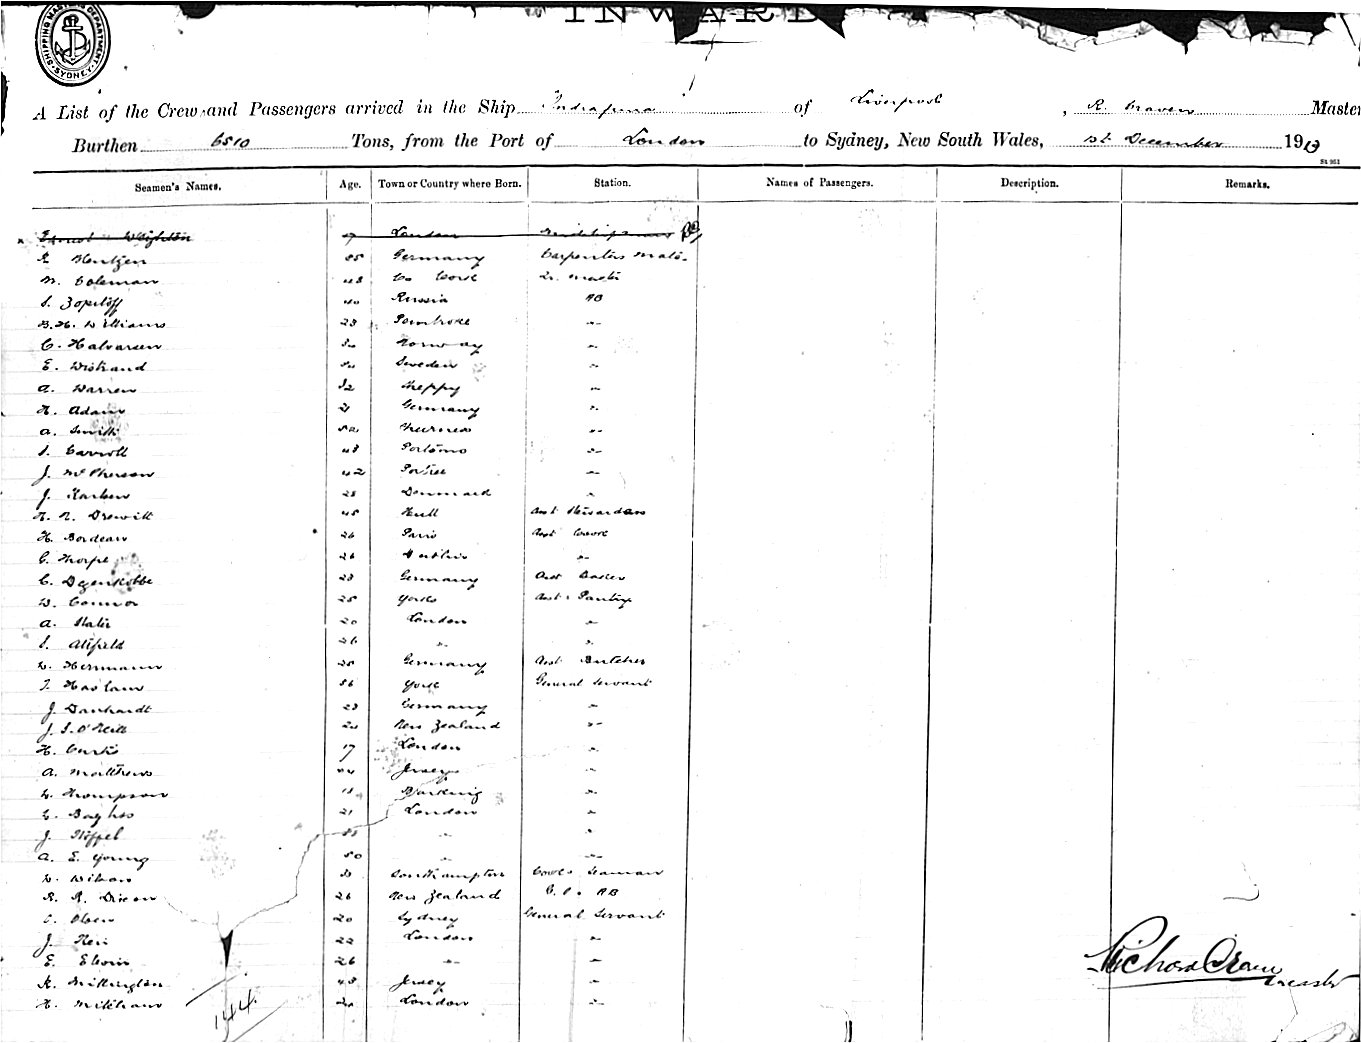 SHIPPING MASTER'S DEPARTMENT · SYDNEY ·
INWARD
A List of the Crew and Passengers arrived in the Ship Indrapura of Liverpool, R. Craven Master
Burthen 6510 Tons, from the Port of London to Sydney, New South Wales, 1st December 1913
St 951
Seamen's Names. Age. Town or Country where Born. Station. Names of Passengers. Description. Remarks.
Ernest Weighton 17 London Midshipman
Hentzen Germany Carpenters Mate
M. Coleman 43 Co Cork Qr. Master
Zopeloff 40 Russia AB
B. H. Williams 23 Pembroke "
C. Halvarsen Norway "
E. Wistrand Sweden "
A. Warren 32 Sheppy "
H. Adam 21 Germany "
A. Smith "
Carroll 43 "
J. McPherson 42 Portree "
J. Karlsen 28 Denmark "
H. R. Drewitt 45 Hull Asst Stewardess
H. Bordeau 26 Paris Asst Cook
G. Thorpe 26 "
C. Degenkolbe 23 Germany Asst Baker
W. Connor 25 Yorks Asst Pantry
A. Slater 20 London "
Allfield 26 " "
W. Herrmann 25 Germany Asst Butcher
T. Haslam 56 York General Servant
J. Danhardt 23 Germany "
J. S. O'Neill 24 New Zealand "
H. Curtis 17 London "
A. Matthews 44 Jersey "
W. Thompson Barking "
21 London "
J. Stoffel " "
A. E. Young 50 " "
W. Wilson Southampton Cook & Seaman
R. R. Dixon 26 New Zealand AB
O. Olsen 20 Sydney General Servant
J. 22 London "
E. Elwin 26 " "
R. Millington 43 Jersey "
H. Mitcham London "
Richard Craven
Master
144.